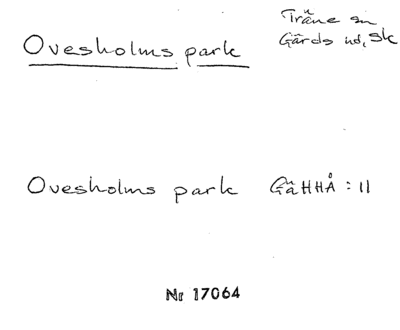 Ovesholms park
Träne sn
Gärds hd, Sk
Ovesholms park GäHHÅ : 11
Nr 17064